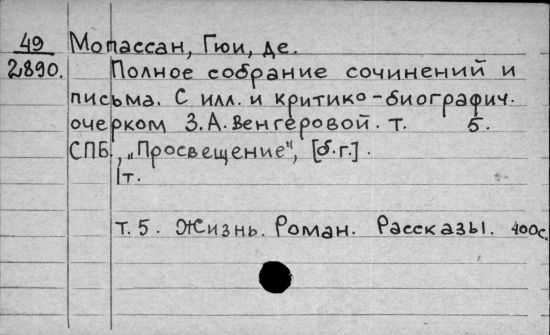 49 Мопассан, Гюи, де.
2890. Полное собрание сочинений и
письма. С илл. и критико-биографич.
очерком З.А.Венгеровой. т. 5.
СПБ., „Просвещение", [б.г.].
т.
т.5. Жизнь. Роман. Рассказы. 400с.